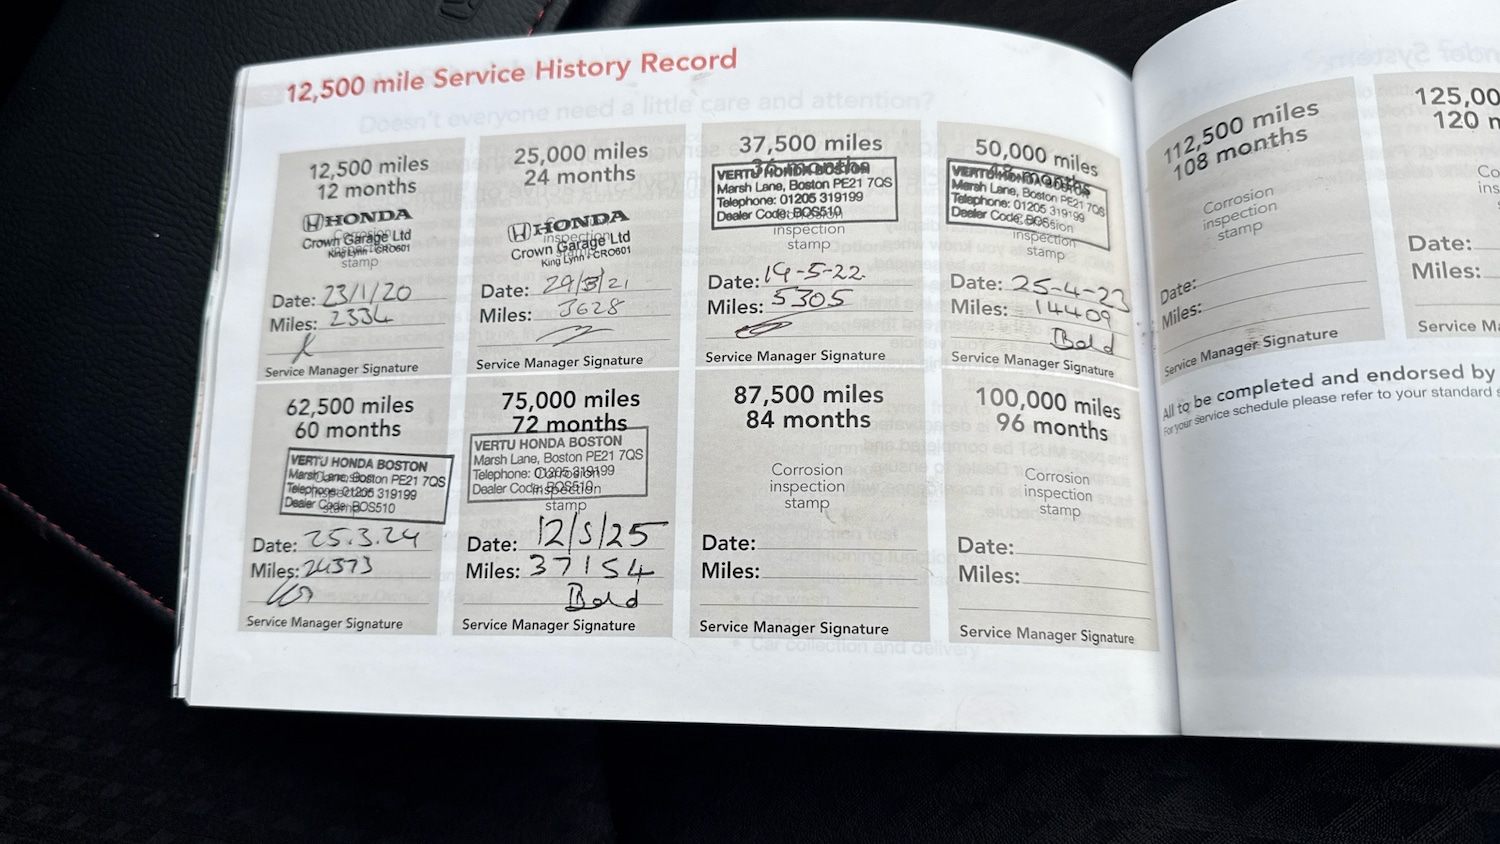 12,500 mile Service History Record
Doesn't everyone need a little care and attention?
12,500 miles
12 months
HONDA
Crown Garage Ltd
King Lynn - CRO601
Corrosion
inspection
stamp
Date: 23/1/20
Miles: 2334
Service Manager Signature
25,000 miles
24 months
HONDA
inspection
Crown Garage Ltd
King Lynn - CRO601
Date: 29/3/21
Miles: 3628
Service Manager Signature
37,500 miles
36 months
VERTU HONDA BOSTON
Marsh Lane, Boston PE21 7QS
Telephone: 01205 319199
Dealer Code: BOS510
inspection
stamp
Date: 19-5-22
Miles: 5305
Service Manager Signature
50,000 miles
months
VERTU HONDA BOSTON
Marsh Lane, Boston PE21 7QS
Telephone: 01205 319199
Dealer Code: BOS
inspection
stamp
Date: 25-4-23
Miles: 14409
Service Manager Signature
62,500 miles
60 months
VERTU HONDA BOSTON
Marsh Lane, Boston PE21 7QS
Telephone: 01205 319199
Dealer Code: BOS510
Date: 25.3.24
Miles: 24373
Service Manager Signature
75,000 miles
72 months
VERTU HONDA BOSTON
Marsh Lane, Boston PE21 7QS
Telephone: 01205 319199
Dealer Code: BOS510
Corrosion
inspection
stamp
Date: 12/5/25
Miles: 37154
Service Manager Signature
87,500 miles
84 months
Corrosion
inspection
stamp
Date:
Miles:
Service Manager Signature
100,000 miles
96 months
Corrosion
inspection
stamp
Date:
Miles:
Service Manager Signature
112,500 miles
108 months
Corrosion
inspection
stamp
Date:
Miles:
Service Manager Signature
125,00
120 m
Co
ins
s
Date:
Miles:
Service Ma
All to be completed and endorsed by
For your service schedule please refer to your standard s